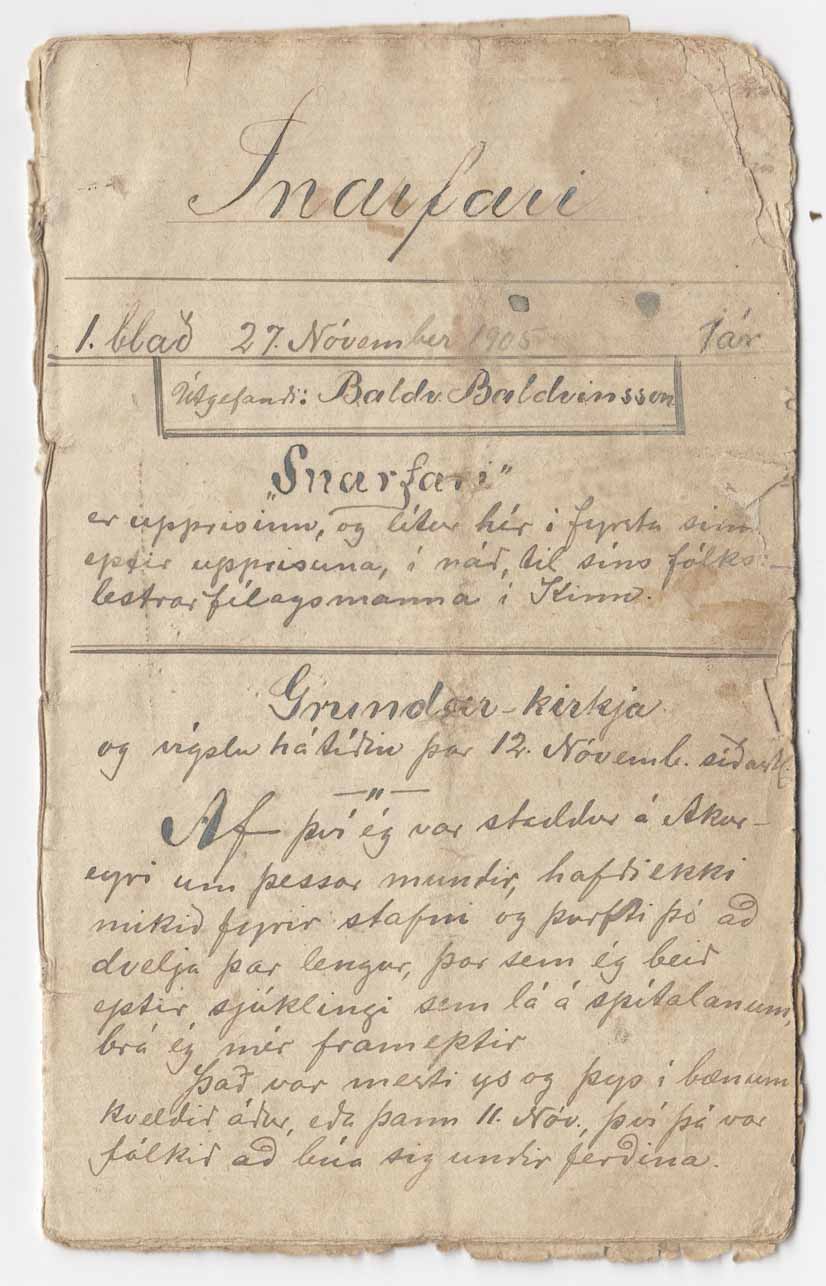 Snarfari
1. blað 27. Nóvember 1905 1 ár
Útgefandi: Baldv. Baldvinsson
„Snarfari"
er upprisinn, og lítur hér í fyrsta sinn
eptir upprisuna, í náð, til síns fólks:-
lestrarfélagsmanna í Kinn.
Grundar-kirkja
og vígsluhátíðin þar 12. Nóvemb. síðastl.
— " —
Af því ég var staddur á Akur-
eyri um þessar mundir, hafði ekki
mikið fyrir stafni og þurfti þó að
dvelja þar lengur, þar sem ég beið
eptir sjúklingi sem lá á spítalanum,
brá ég mér frameptir
Það var mesti ys og þys í bænum
kveldið áður, eða þann 11. Nóv., því þá var
fólkið að búa sig undir ferðina.